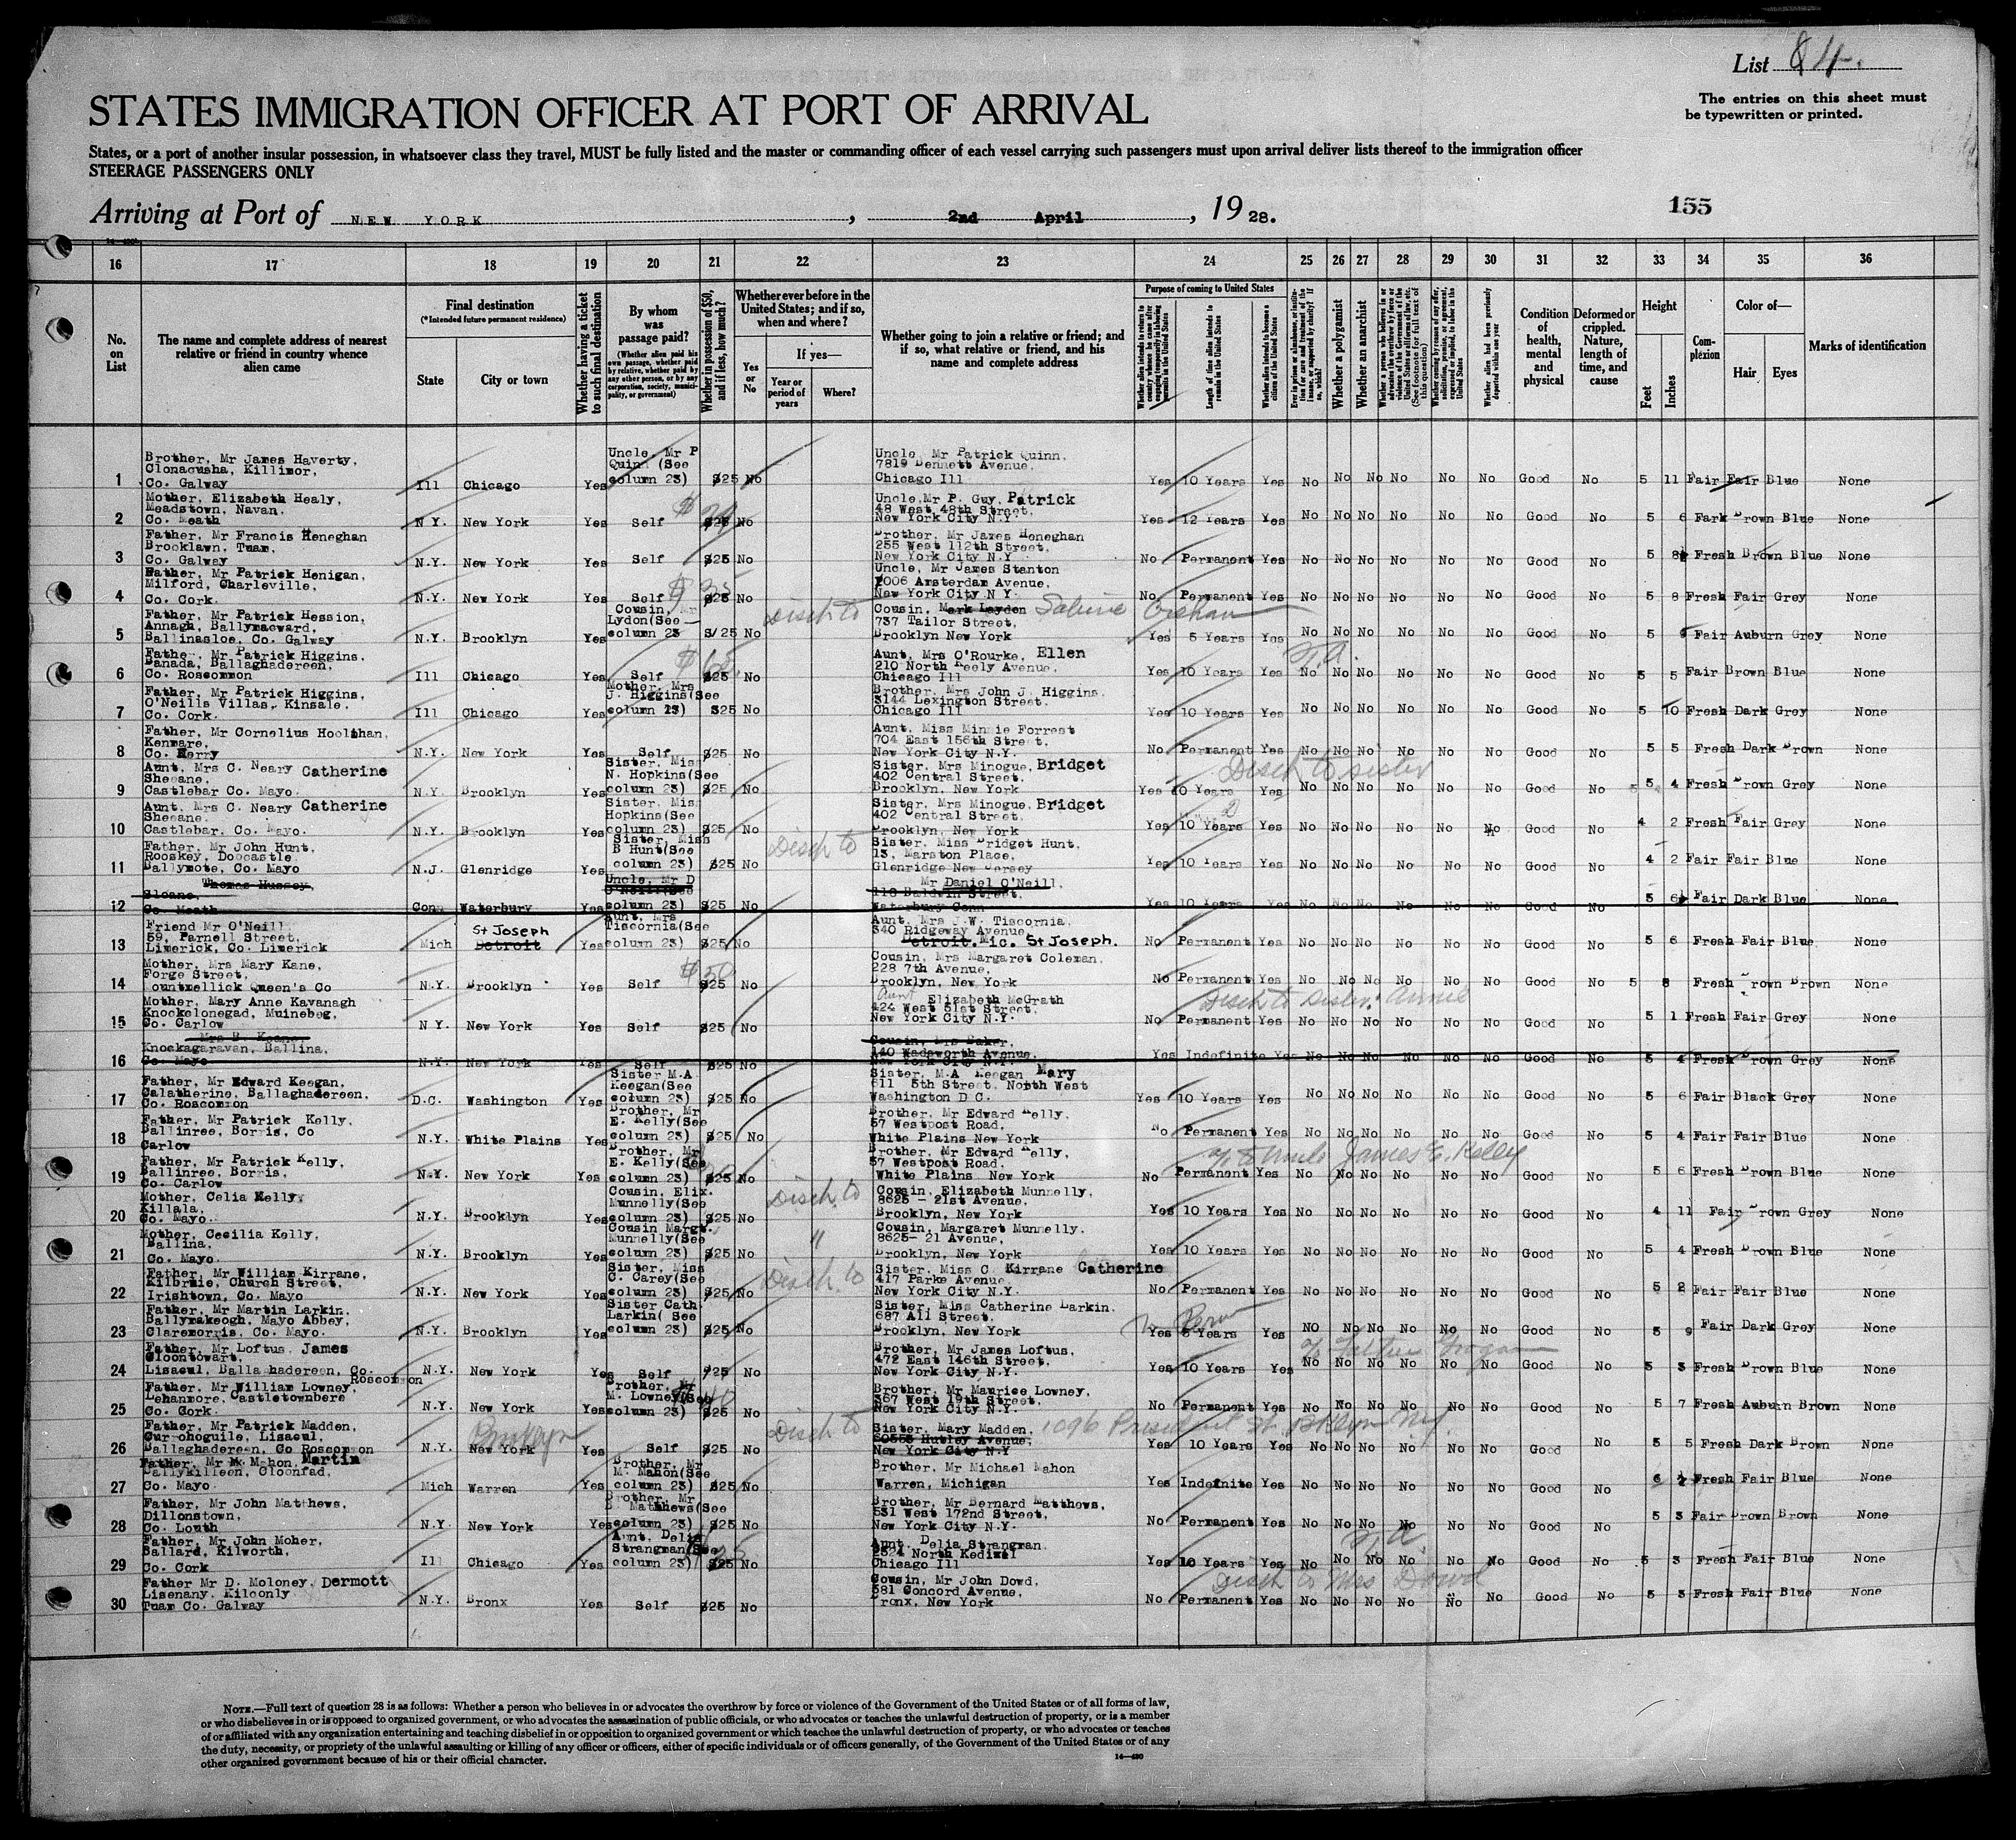 List 84.
The entries on this sheet must
be typewritten or printed.
STATES IMMIGRATION OFFICER AT PORT OF ARRIVAL
States, or a port of another insular possession, in whatsoever class they travel, MUST be fully listed and the master or commanding officer of each vessel carrying such passengers must upon arrival deliver lists thereof to the immigration officer
STEERAGE PASSENGERS ONLY
Arriving at Port of NEW YORK, 2nd April, 1928.
155
16 17 18 19 20 21 22 23 24 25 26 27 28 29 30 31 32 33 34 35 36
No. on List
The name and complete address of nearest relative or friend in country whence alien came
Final destination
(*Intended future permanent residence)
State
City or town
Whether having a ticket to such final destination
By whom was passage paid?
(Whether alien paid his own passage, whether paid by relative, whether paid by any other person, or by any corporation, society, municipality, or government)
Whether in possession of $50, and if less, how much?
Whether ever before in the United States; and if so, when and where?
Yes or No
If yes—
Year or period of years
Where?
Whether going to join a relative or friend; and if so, what relative or friend, and his name and complete address
Purpose of coming to United States
Length of time alien intends to remain in the United States
Whether alien intends to become a citizen of the United States
Whether a polygamist
Whether an anarchist
Whether alien had been previously deported within one year
Condition of health, mental and physical
Deformed or crippled. Nature, length of time, and cause
Height
Feet
Inches
Complexion
Color of—
Hair
Eyes
Marks of identification
1 Brother, Mr James Haverty, Clonacusha, Killimor, Co. Galway Ill Chicago Yes Uncle, Mr P Quinn (See column 23) $25 No Uncle, Mr Patrick Quinn, 7819 Bennett Avenue, Chicago Ill Yes 10 Years Yes No No No No No No Good No 5 11 Fair Fair Blue None
2 Mother, Elizabeth Healy, Meadstown, Navan. Co. Meath N.Y. New York Yes Self $25 No Uncle, Mr P. Guy, Patrick 48 West 48th Street, New York City N.Y. Yes 12 Years Yes No No No No No No Good No 5 6 Fark Brown Blue None
3 Father, Mr Francis Heneghan Brooklawn, Tuam, Co. Galway N.Y. New York Yes Self $25 No Brother, Mr James Heneghan 255 West 112th Street, New York City N.Y. No Permanent Yes No No No No No No Good No 5 8½ Fresh Brown Blue None
4 Father, Mr Patrick Henigan, Milford, Charleville, Co. Cork. N.Y. New York Yes Self $35 $25 No Uncle, Mr James Stanton 2006 Amsterdam Avenue, New York City N.Y. No Permanent Yes No No No No No No Good No 5 8 Fresh Fair Grey None
5 Father, Mr Patrick Hession, Annagh, Ballymacward, Ballinasloe, Co. Galway N.Y. Brooklyn Yes Cousin, Mr Lydon(See column 23 $25 No Disch to Cousin, Mark Laydon 737 Tailor Street, Brooklyn New York Yes 5 Years Yes No No No No No No Good No 5 Fair Auburn Grey None
6 Father, Mr Patrick Higgins, Banada, Ballaghadereen, Co. Roscommon Ill Chicago Yes Self $25 No Aunt, Mrs O'Rourke, Ellen 210 North Keely Avenue, Chicago Ill Yes 10 Years Yes No No No No No No Good No 5 5 Fair Brown Blue None
7 Father, Mr Patrick Higgins, O'Neills Villas, Kinsale, Co. Cork. Ill Chicago Yes Mother, Mrs J. Higgins(See column 23) $25 No Brother, Mrs John J. Higgins, 3144 Lexington Street, Chicago Ill Yes 10 Years Yes No No No No No No Good No 5 10 Fresh Dark Grey None
8 Father, Mr Cornelius Hoolihan, Kenmare, Co. Kerry N.Y. New York Yes Self $25 No Aunt, Miss Minnie Forrest 704 East 156th Street, New York City N.Y. No Permanent Yes No No No No No No Good No 5 5 Fresh Dark Brown None
9 Aunt, Mrs C. Neary Catherine Sheeane, Castlebar Co. Mayo. N.Y. Brooklyn Yes Sister, Miss N. Hopkins(See column 23) $25 No Sister, Mrs Minogue, Bridget 402 Central Street, Brooklyn, New York Disch to sister Yes 10 Years Yes No No No No No No Good No 5 4 Fresh Brown Grey None
10 Aunt, Mrs C. Neary Catherine Sheeane. Castlebar, Co. Mayo. N.Y. Brooklyn Yes Sister, Miss Hopkins(See column 23) $25 No Sister, Mrs Minogue, Bridget 402 Central Street, Brooklyn, New York Yes 10 Years Yes No No No No No No Good No 4 2 Fresh Fair Grey None
11 Father, Mr John Hunt, Rooskey, Doocastle, Ballymote, Co. Mayo N.J. Glenridge Yes Sister, Miss B Hunt(See column 23) $25 No Disch to Sister, Miss Bridget Hunt, 13, Marston Place, Glenridge New Jersey Yes 10 Years Yes No No No No No No Good No 4 2 Fair Fair Blue None
12 Thomas Hussey, Sloane, Co. Meath Conn Waterbury Yes Uncle, Mr D O'Neill(See column 23) $25 No Mr Daniel O'Neill, 118 Baldwin Street, Waterbury Conn Yes 10 Years Yes No No No No No No Good No 5 6½ Fair Dark Blue None
13 Friend Mr O'Neill 59, Parnell Street, Limerick, Co. Limerick Mich St Joseph Detroit Yes Aunt, Mrs Tiscornia(See column 23) $25 No Aunt, Mrs J.W. Tiscornia, 340 Ridgeway Avenue, Detroit. Mic. St Joseph. No Permanent Yes No No No No No No Good No 5 6 Fresh Fair Blue None
14 Mother, Mrs Mary Kane, Forge Street, Mountmellick Queen's Co N.Y. Brooklyn Yes Self $50 $25 No Cousin, Mrs Margaret Coleman, 228 7th Avenue, Brooklyn, New York No Permanent Yes No No No No No No Good No 5 8 Fresh Brown Brown None
15 Mother, Mary Anne Kavanagh Knockolonegad, Muinebeg, Co. Carlow N.Y. New York Yes Self $25 No Aunt Elizabeth McGrath 424 West 51st Street, New York City N.Y. Disch to sister: Annie No Permanent Yes No No No No No No Good No 5 1 Fresh Fair Grey None
16 Mrs B. Keane, Knockagaravan, Ballina, Co. Mayo N.Y. New York Yes Self $25 No Cousin, Mrs Baker, 440 Wadsworth Avenue, New York City N.Y. Yes Indefinite Yes No No No No No No Good No 5 4 Fresh Brown Grey None
17 Father, Mr Edward Keegan, Calatherine, Ballaghadereen, Co. Roscommon D.C. Washington Yes Sister M.A Keegan(See column 23) $25 No Sister, M.A Keegan Mary 611 5th Street, North West Washington D C. Yes 10 Years Yes No No No No No No Good No 5 6 Fair Black Grey None
18 Father, Mr Patrick Kelly, Ballinree, Borris, Co Carlow N.Y. White Plains Yes Brother, Mr E. Kelly(See column 23) $25 No Brother, Mr Edward Kelly, 57 Westpost Road, White Plains New York No Permanent Yes No No No No No No Good No 5 4 Fair Fair Blue None
19 Father, Mr Patrick Kelly, Ballinree, Borris, Co. Carlow N.Y. New York Yes Brother, Mr E. Kelly(See column 23) $25 No Brother, Mr Edward Kelly, 57 Westpost Road, White Plains New York Uncle James E. Kelly No Permanent Yes No No No No No No Good No 5 6 Fresh Brown Blue None
20 Mother, Celia Kelly, Killala, Co. Mayo. N.Y. Brooklyn Yes Cousin, Eliz. Munnelly(See column 23) $25 No Disch. to Cousin, Elizabeth Munnelly, 8625 - 21st Avenue, Brooklyn, New York Yes 10 Years Yes No No No No No No Good No 4 11 Fair Brown Grey None
21 Mother, Cecilia Kelly, Ballina, Co. Mayo. N.Y. Brooklyn Yes Cousin Margt. Munnelly(See column 23) $25 No " Cousin, Margaret Munnelly, 8625- 21 Avenue, Brooklyn, New York Yes 10 Years Yes No No No No No No Good No 5 4 Fresh Brown Blue None
22 Father, Mr William Kirrane, Kilbrnie, Church Street, Irishtown, Co. Mayo N.Y. New York Yes Sister, Miss C. Carey(See column 23) $25 No Disch. to Sister, Miss C Kirrane Catherine 417 Parke Avenue, New York City N.Y. No Permanent Yes No No No No No No Good No 5 2 Fair Fair Blue None
23 Father, Mr Martin Larkin, Ballymakeogh, Mayo Abbey, Claremorris, Co. Mayo. N.Y. Brooklyn Yes Sister Cath. Larkin( See column 23) $25 No Sister, Miss Catherine Larkin, 687 All Street, Brooklyn, New York Yes 5 Years Yes No No No No No No Good No 5 9 Fair Dark Grey None
24 Father, Mr Loftus, James Cloontowart, Lisacul, Ballaghadereen, Co. Roscommon N.Y. New York Yes Self $25 No Brother, Mr James Loftus, 472 East 146th Street, New York City N.Y. Yes 10 Years Yes No No No No No No Good No 5 3 Fresh Brown Blue None
25 Father, Mr William Lowney, Dehanmore, Castletownbere Co. Cork. N.Y. New York Yes Brother, Mr M. Lowney(See column 23) $25 No Brother, Mr Maurice Lowney, 367 West 19th Street, New York City N.Y. No Permanent Yes No No No No No No Good No 5 7 Fresh Auburn Brown None
26 Father, Mr Patrick Madden, Currohoguile, Lisacul, Ballaghadereen, Co Roscommon N.Y. Brooklyn New York Yes Self $25 No Disch to Sister, Mary Madden, Hutley Avenue, New York City N.Y 1096 President St. Bklyn N.Y. Yes 10 Years Yes No No No No No No Good No 5 5 Fresh Dark Brown None
27 Father, Mr M Mahon, Martin Ballykilleen, Cloonfad, Co. Mayo Mich Warren Yes Brother, Mr M. Mahon(See column 23) $25 No Brother, Mr Michael Mahon Warren, Michigan Yes Indefnite Yes No No No No No No Good No 6 Fresh Fair Blue None
28 Father, Mr John Matthews, Dillonstown, Co. Louth N.Y. New York Yes Brother, Mr B Matthews(See column 23) $25 No Brother, Mr Bernard Matthews, 531 West 172nd Street, New York City N.Y. No Permanent Yes No No No No No No Good No 5 3 Fair Brown Brown None
29 Father, Mr John Moher, Ballard, Kilworth, Co. Cork Ill Chicago Yes Aunt, Delia Strangman(See column 23) $25 No Aunt, Delia Strangman, 2524 North Kedizel Chicago Ill Yes 10 Years Yes No No No No No No Good No 5 3 Fresh Fair Blue None
30 Father Mr D. Moloney, Dermott Lisenany, Kilconly Tuam Co. Galway N.Y. Bronx Yes Self $25 No Cousin, Mr John Dowd, 581 Concord Avenue, Bronx, New York Disch to Mrs Dowd No Permanent Yes No No No No No No Good No 5 3 Fresh Fair Blue None
NOTE.—Full text of question 28 is as follows: Whether a person who believes in or advocates the overthrow by force or violence of the Government of the United States or of all forms of law,
or who disbelieves in or is opposed to organized government, or who advocates the assassination of public officials, or who advocates or teaches the unlawful destruction of property, or is a member
of or affiliated with any organization entertaining and teaching disbelief in or opposition to organized government or which teaches the unlawful destruction of property, or who advocates or teaches
the duty, necessity, or propriety of the unlawful assaulting or killing of any officer or officers, either of specific individuals or of officers generally, of the Government of the United States or of any
other organized government because of his or their official character.
14—430